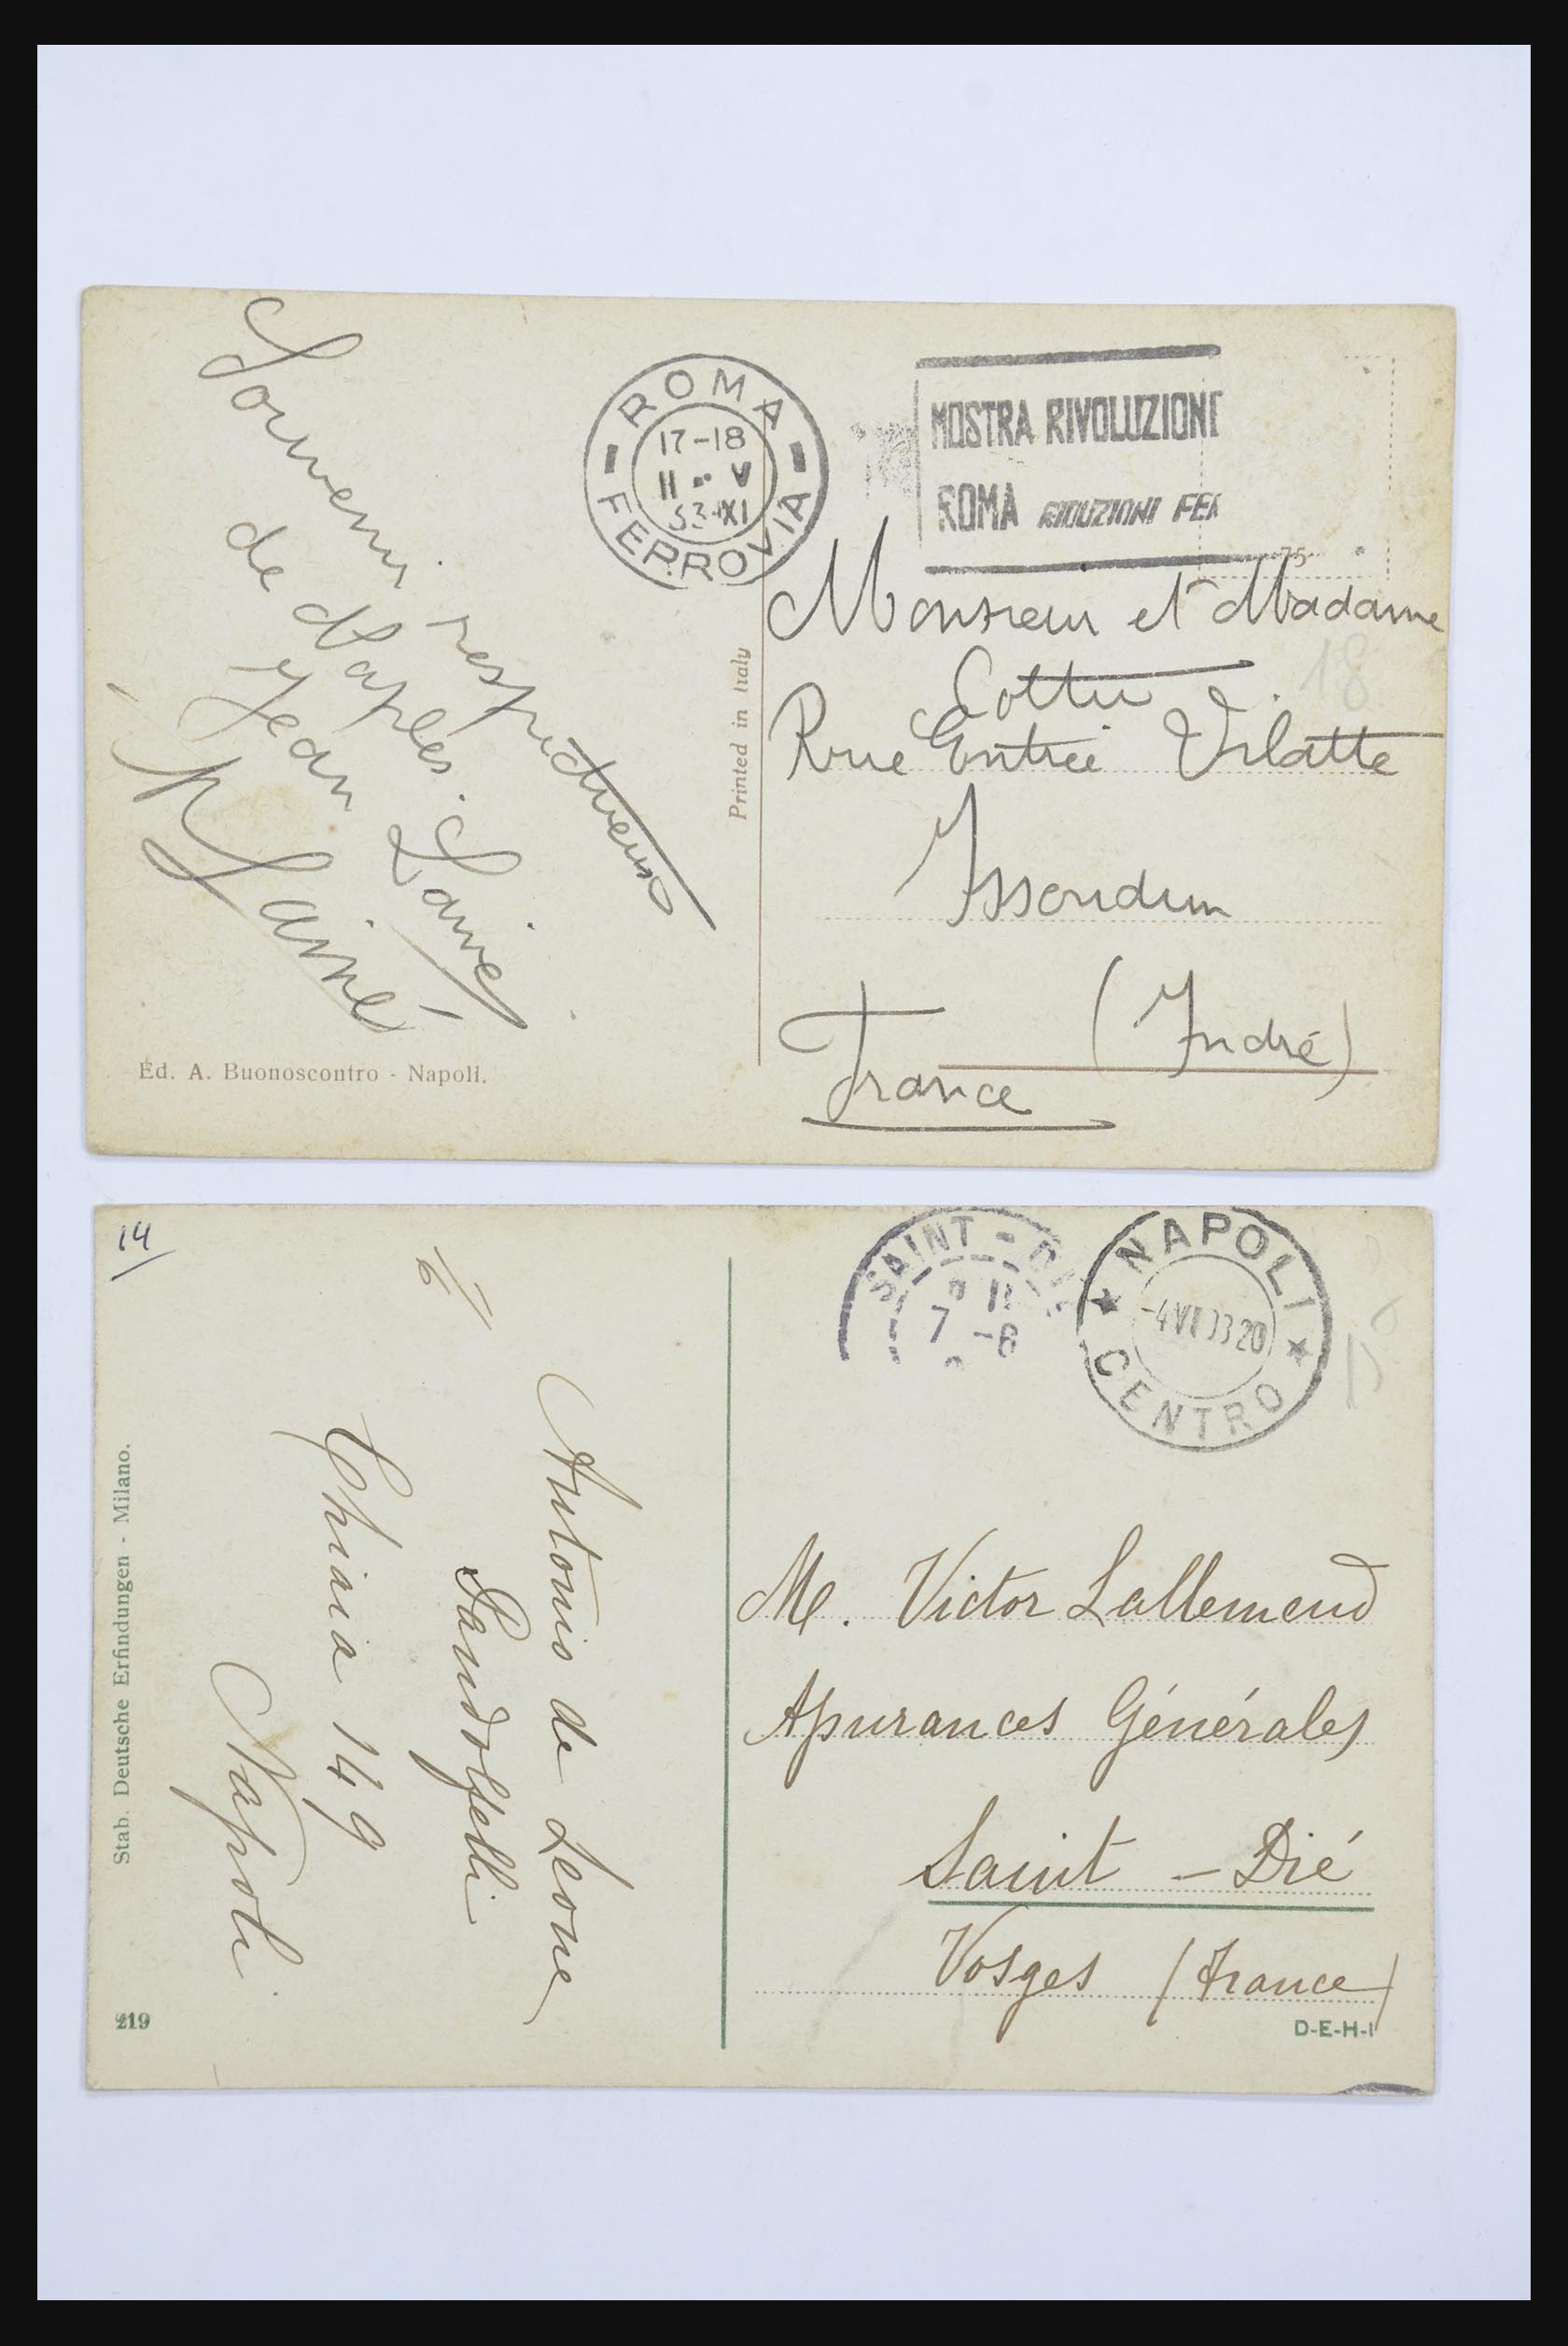 Souvenir respectueux
de Naples.
Jean Lainé
R Lainé
Ed. A. Buonoscontro - Napoli.
Printed in Italy
ROMA
17-18
11 V
33 XI
FERROVIA
MOSTRA RIVOLUZIONE
ROMA RIDUZIONI FER
75
Monsieur et Madame
18
Rue Entrée Vilatte
Issoudun
(Indre)
France
14
Antonio de Leone
Sandolfelli
Chiaia 149
Napoli
Stab. Deutsche Erfindungen - Milano.
219
SAINT-DIÉ
11
7 -8
NAPOLI
CENTRO
M. Victor Lallemend
Assurances Générales
Saint - Dié
Vosges (France)
D-E-H-I